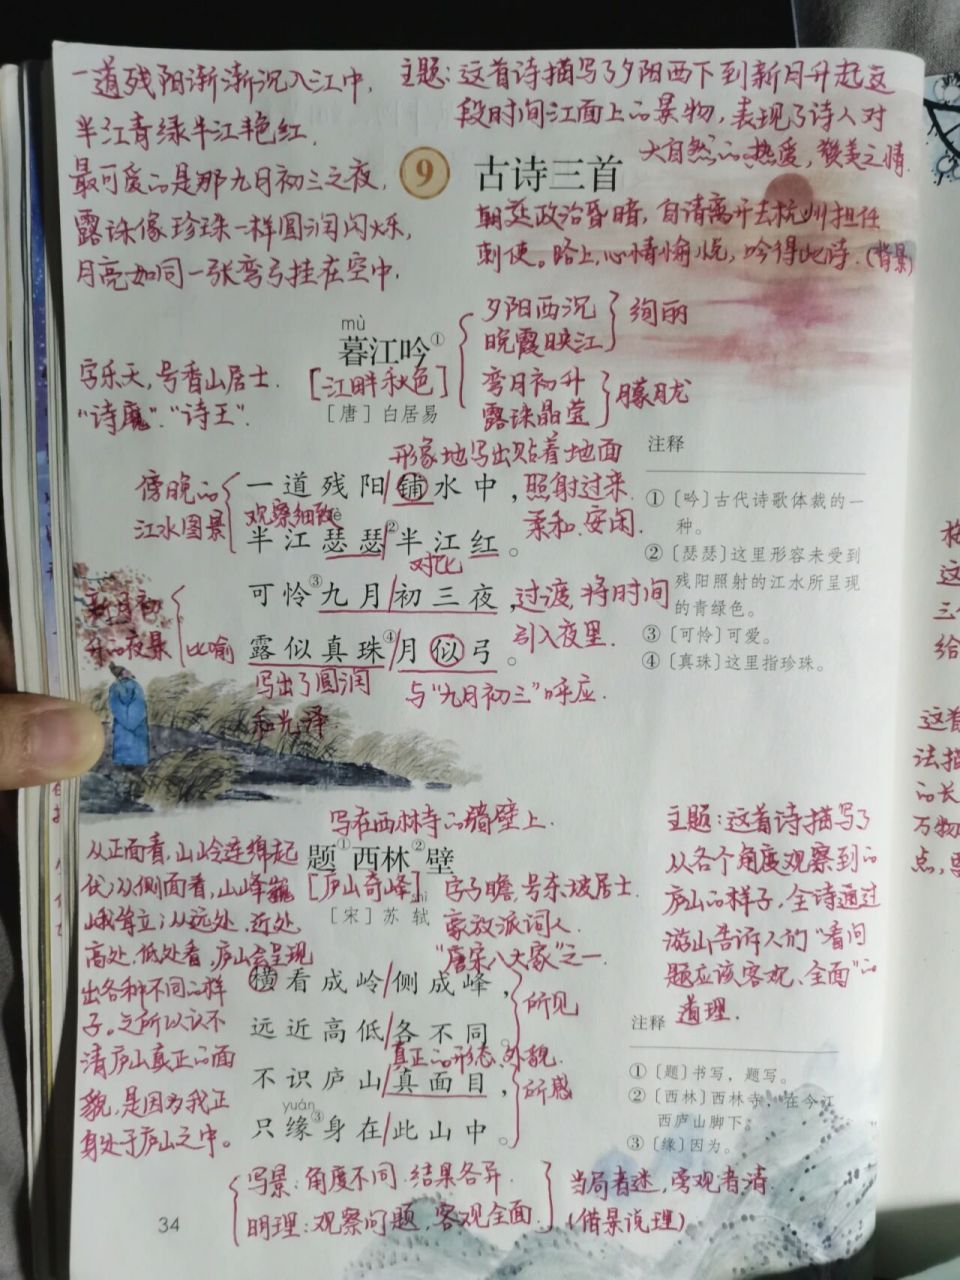 一道残阳渐渐沉入江中,
半江青绿半江艳红.
最可爱的是那九月初三之夜,
露珠像珍珠一样圆润闪烁,
月亮如同一张弯弓挂在空中.
主题:这首诗描写了夕阳西下到新月升起这
段时间江面上的景物,表现了诗人对
大自然的热爱,赞美之情.
9 古诗三首
朝廷政治昏暗,自请离开去杭州担任
刺使。路上,心情愉悦,吟得此诗.(背景)
mù
暮江吟①
[江畔秋色]
[唐] 白居易
夕阳西沉
晚霞映江
绚丽
弯月初升
露珠晶莹
朦月龙
字乐天,号香山居士.
“诗魔”.“诗王”.
形象地写出贴着地面
照射过来.
柔和、安闲.
傍晚的
江水图景
一道残阳/铺水中,
观察细致
半江瑟瑟②/半江红。
对比
可怜③九月/初三夜,
过渡,将时间
引入夜里.
新月初
升的夜景
比喻
露似真珠④/月似弓。
写出了圆润
和光泽.
与“九月初三”呼应.
注释
①〔吟〕古代诗歌体裁的一
种。
②〔瑟瑟〕这里形容未受到
残阳照射的江水所呈现
的青绿色。
③〔可怜〕可爱。
④〔真珠〕这里指珍珠。
写在西林寺的墙壁上.
题①西林②壁
[庐山奇峰]
shì
[宋] 苏 轼
字子瞻,号东坡居士.
豪放派词人.
“唐宋八大家”之一.
从正面看,山岭连绵起
伏;从侧面看,山峰巍
峨耸立;从远处、近处
高处、低处看,庐山会呈现
出各种不同的样
子。之所以认不
清庐山真正的面
貌,是因为我正
身处于庐山之中。
横看成岭/侧成峰,
远近高低/各不同。
所见
真正的形态、外貌.
不识庐山/真面目,
yuán
只缘③身在/此山中。
所感
主题:这首诗描写了
从各个角度观察到的
庐山的样子,全诗通过
游山告诉人们“看问
题应该客观、全面”的
道理.
注释
①〔题〕书写,题写。
②〔西林〕西林寺,在今江
西庐山脚下。
③〔缘〕因为。
写景:角度不同.结果各异.
明理:观察问题,客观全面.
当局者迷,旁观者清
(借景说理)
34
梅
这
三
给
这首
法描
的长
万物
点,